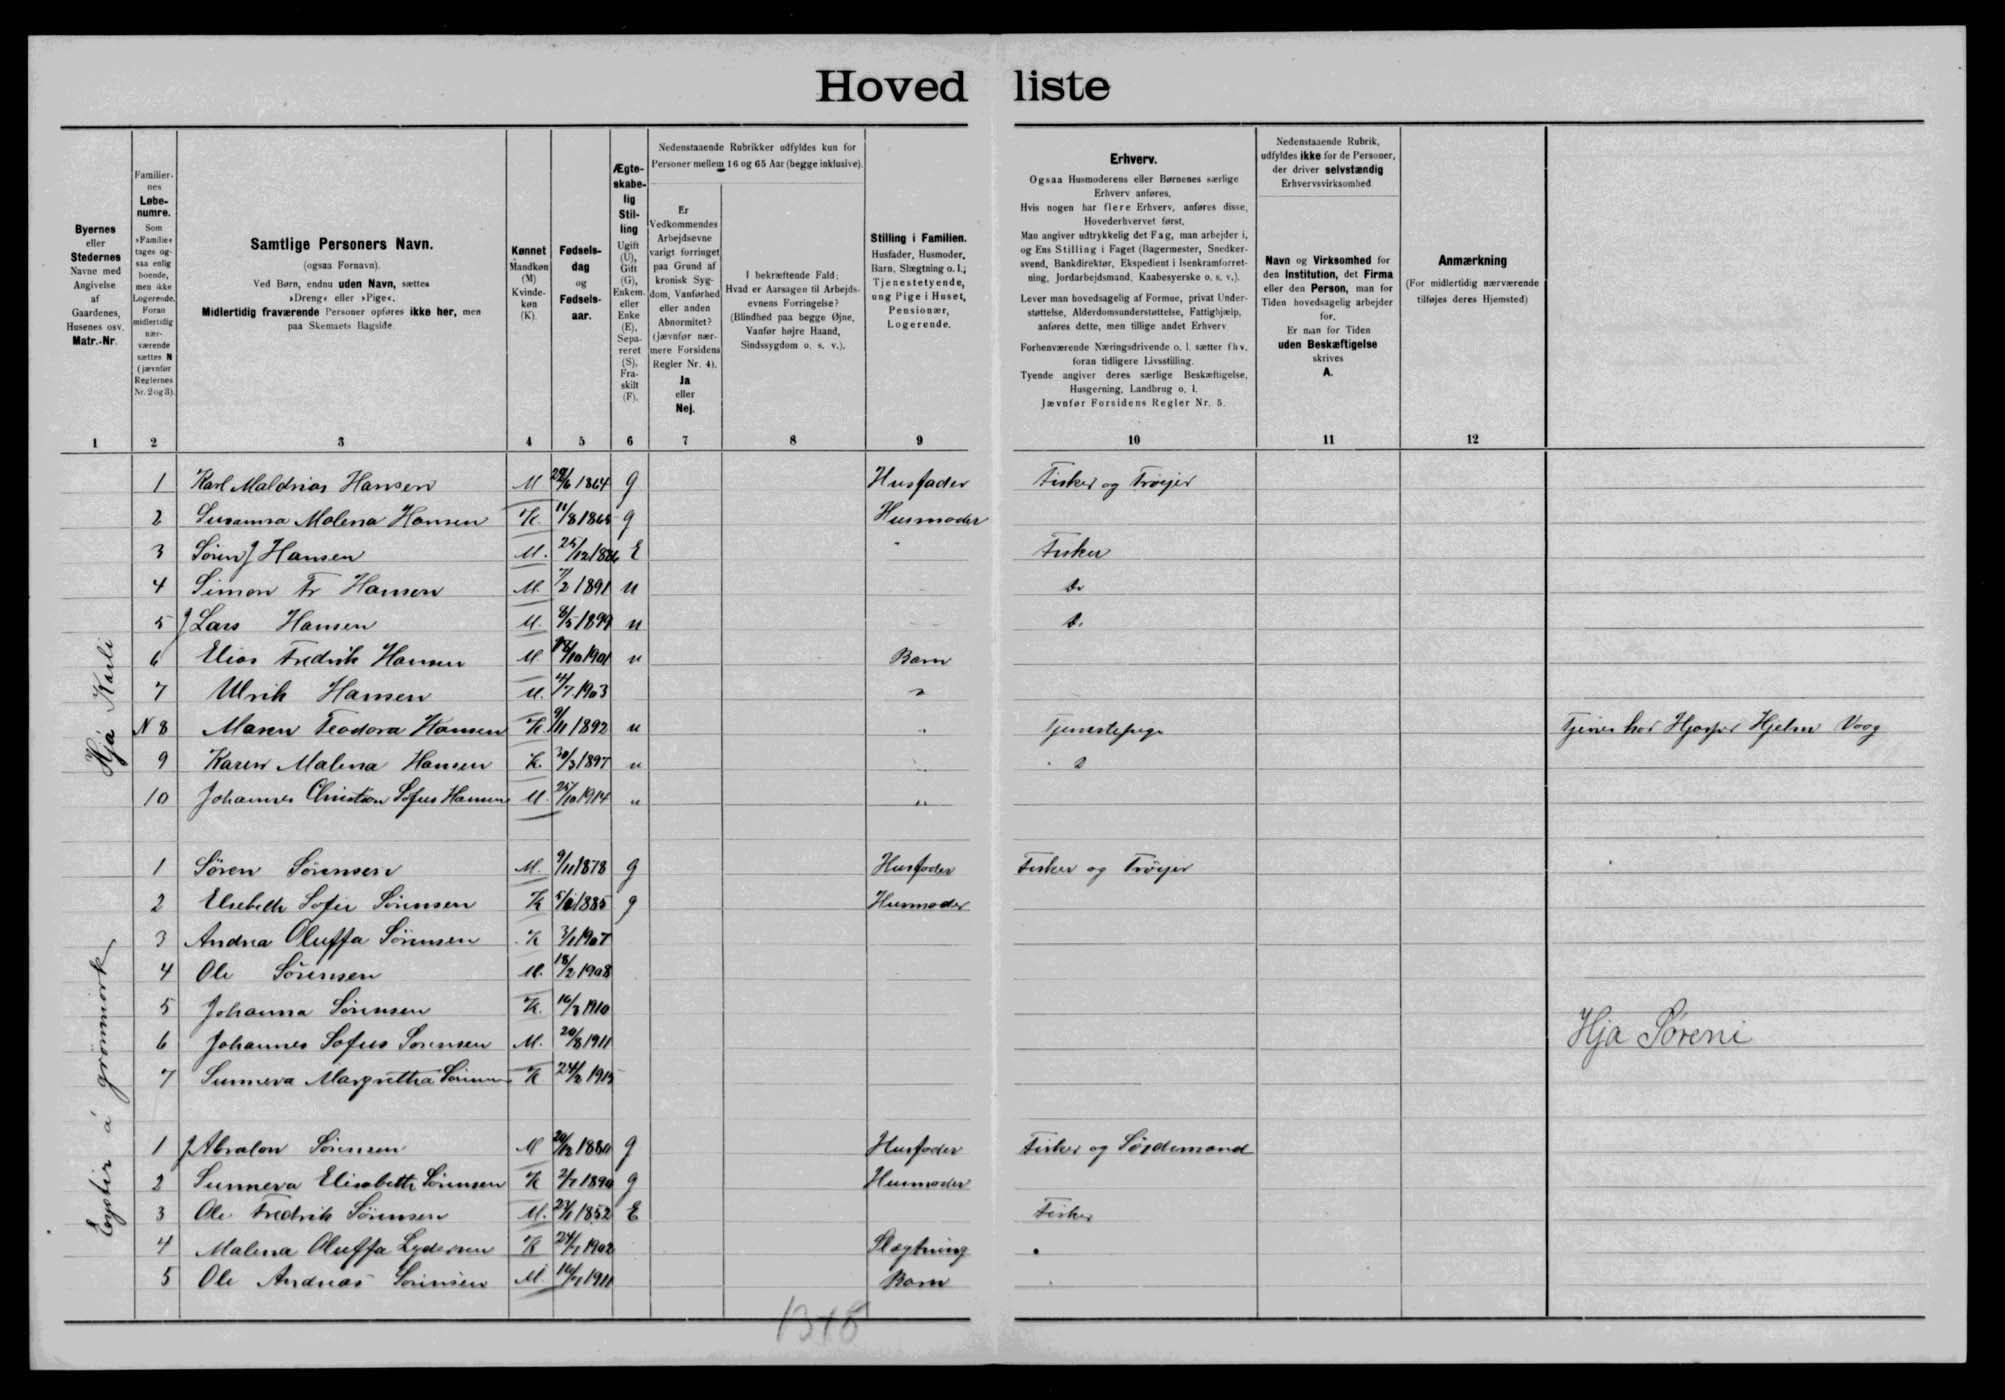 Hovedliste
Byernes
eller
Stedernes
Navne med
Angivelse
af
Gaardenes,
Husenes osv.
Matr.-Nr.
1
Familier-
nes
Løbe-
numre.
Som
»Familie«
tages og-
saa enlig
boende,
men ikke
Logerende.
Foran
midlertidig
nær-
værende
sættes N
(jævnfør
Reglernes
Nr. 2 og 3).
2
Samtlige Personers Navn.
(ogsaa Fornavn).
Ved Børn, endnu uden Navn, sættes
»Dreng« eller »Pige«.
Midlertidig fraværende Personer opføres ikke her, men
paa Skemaets Bagside.
3
Kønnet
Mandkøn
(M)
Kvinde-
køn
(K).
4
Fødsels-
dag
og
Fødsels-
aar.
5
Ægte-
skabe-
lig
Stil-
ling
Ugift
(U),
Gift
(G),
Enkem.
eller
Enke
(E),
Sepa-
reret
(S),
Fra-
skilt
(F).
6
Nedenstaaende Rubrikker udfyldes kun for
Personer mellem 16 og 65 Aar (begge inklusive).
Er
Vedkommendes
Arbejdsevne
varigt forringet
paa Grund af
kronisk Syg-
dom, Vanførhed
eller anden
Abnormitet?
(Jævnfør nær-
mere Forsidens
Regler Nr. 4).
Ja
eller
Nej.
7
I bekræftende Fald:
Hvad er Aarsagen til Arbejds-
evnens Forringelse?
(Blindhed paa begge Øjne,
Vanfør højre Haand,
Sindssygdom o. s. v.).
8
Stilling i Familien.
Husfader, Husmoder,
Barn, Slægtning o. l.;
Tjenestetyende,
ung Pige i Huset,
Pensionær,
Logerende.
9
Erhverv.
Ogsaa Husmoderens eller Børnenes særlige
Erhverv anføres.
Hvis nogen har flere Erhverv, anføres disse,
Hovederhvervet først.
Man angiver udtrykkelig det Fag, man arbejder i,
og Ens Stilling i Faget (Bagermester, Snedker-
svend, Bankdirektør, Ekspedient i Isenkramforret-
ning, Jordarbejdsmand, Kaabesyerske o. s. v.).
Lever man hovedsagelig af Formue, privat Under-
støttelse, Alderdomsunderstøttelse, Fattighjælp,
anføres dette, men tillige andet Erhverv
Forhenværende Næringsdrivende o. l. sætter fhv.
foran tidligere Livsstilling.
Tyende angiver deres særlige Beskæftigelse,
Husgerning, Landbrug o. l.
Jævnfør Forsidens Regler Nr. 5.
10
Nedenstaaende Rubrik,
udfyldes ikke for de Personer,
der driver selvstændig
Erhvervsvirksomhed.
Navn og Virksomhed for
den Institution, det Firma
eller den Person, man for
Tiden hovedsagelig arbejder
for.
Er man for Tiden
uden Beskæftigelse
skrives
A.
11
Anmærkning
(For midlertidig nærværende
tilføjes deres Hjemsted)
12
Hjá Karli
1 Karl Maldrias Hansen M 1864 g Husfader Fisker og Trøyer
2 Susanna Malena Hansen K. 11/8 1865 g Husmoder
3 Søren J Hansen M. 25/12 E Fisker
4 Simon Fr Hansen M. 7/2 1891 u do
5 J Lars Hansen M. 8/5 1899 u d.
6 Elias Fredrik Hansen M /10 1901 u Barn
7 Ulrik Hansen M. 4/7 1903 "
N 8 Maren Teodora Hansen K. 9/11 1892 u " Tjenestepige Tjener hos Hjelm Vaag
9 Karen Malena Hansen K. 30/3 1897 u " do
10 Johannes Christian Sofus Hansen M. 25/10 1914 " "
Eystir á grømmørk
1 Søren Sørensen M. 9/11 1878 g Husfader Fisker og Trøyer
2 Elsebeth Sofie Sørensen K 1885 g Husmoder
3 Andrea Oluffa Sørensen K 3/1 1907
4 Ole Sørensen M. 18/2 1908
5 Johanna Sørensen K. 16/3 1910
6 Johannes Sofus Sørensen M. 20/8 1911 Hja Søreni
7 Sunneva Margretha Sørensen K 24/2 1915
1 J Absalon Sørensen M 20/12 1880 g Husfader Fisker og
2 Sunneva Elisabeth Sørensen K 2/7 1890 g Husmoder
3 Ole Fredrik Sørensen M. 1852 E Fisker
4 Malena Oluffa Lydersen K 24/7 1902 Slægtning "
5 Ole Andreas Sørensen M 16/7 1911 Barn
13+8